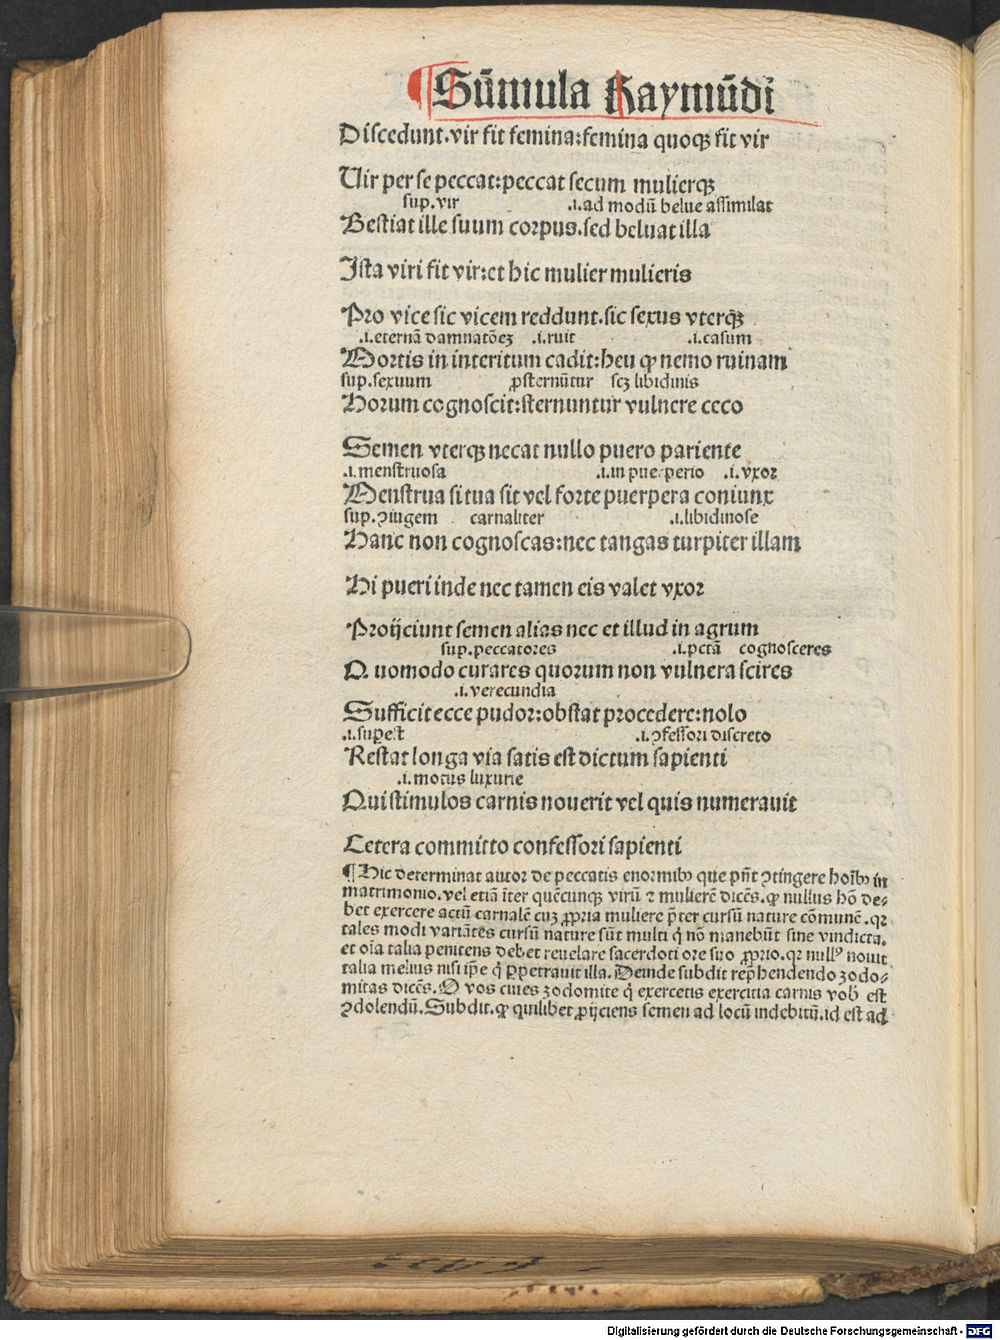 ¶ Sūmula Raymūdi
Discedunt.vir fit femina:femina quoqꝫ fit vir
Uir per se peccat:peccat secum mulierqꝫ
sup.vir .i.ad modū belue assimilat
Bestiat ille suum corpus.sed beluat illa
Ista viri fit vir:et hic mulier mulieris
Pro vice sic vicem reddunt.sic sexus vterqꝫ
.i.eternā damnatōeꝫ .i.ruit .i.casum
Mortis in interitum cadit:heu ꝙ nemo ruinam
sup.sexuum ꝓsternūtur scꝫ libidinis
Horum cognoscit:sternuntur vulnere ceco
Semen vterqꝫ necat nullo puero pariente
.i.menstruosa .i.in puerperio .i.vxor
Menstrua si tua sit vel forte puerpera coniunx
sup.ꝯiugem carnaliter .i.libidinose
Hanc non cognoscas:nec tangas turpiter illam
Hi pueri inde nec tamen eis valet vxor
Proijciunt semen alias nec et illud in agrum
sup.peccatores .i.pctā cognosceres
Quomodo curares quorum non vulnera scires
.i.verecundia
Sufficit ecce pudor:obstat procedere:nolo
.i.suꝑest .i.ꝯfessori discreto
Restat longa via satis est dictum sapienti
.i.motus luxurie
Qui stimulos carnis nouerit vel quis numerauit
Cetera committo confessori sapienti
¶ Hic determinat autor de peccatis enormibꝰ que pn̄t ꝯtingere hoībꝰ in
matrimonio.vel etiā īter quēcunqꝫ virū ⁊ mulierē dicēs.ꝙ nullus hō de⸗
bet exercere actū carnalē cuꝫ ꝓpria muliere p̄ter cursū nature cōmunē.qꝛ
tales modi variātes cursū nature sūt multi q̇ nō manebūt sine vindicta.
et oīa talia penitens debet reuelare sacerdoti ore suo ꝓprio.qꝛ nullꝰ nouit
talia melius nisi ip̄e q̇ ꝑpetrauit illa.Deinde subdit rep̄hendendo zodo⸗
mitas dicēs.O vos ciues zodomite q̇ exercetis exercitia carnis vob̄ est
ꝯdolendū.Subdit.ꝙ quilibet ꝓijciens semen ad locū indebitū.id est ad
Digitalisierung gefördert durch die Deutsche Forschungsgemeinschaft - DFG